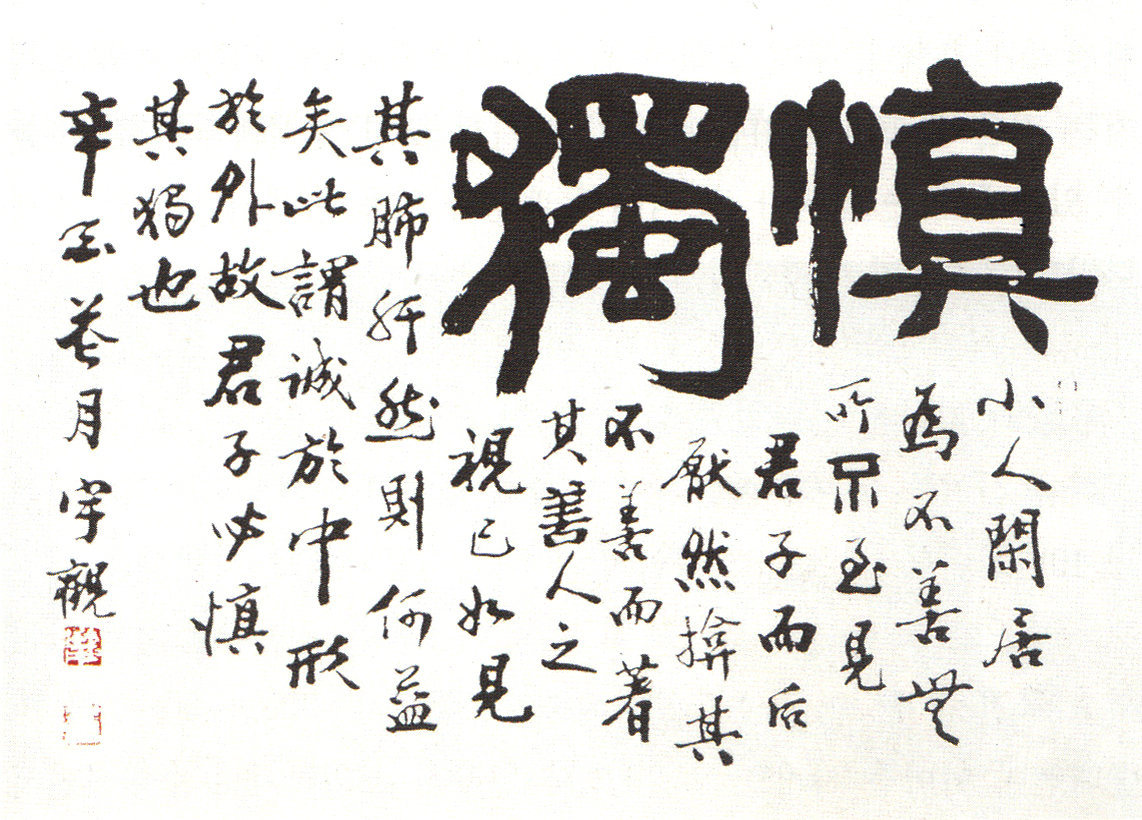 慎獨
小人閑居
為不善無
所不至見
君子而后
厭然揜其
不善而著
其善人之
視己如見
其肺肝然則何益
矣此謂誠於中形
於外故君子必慎
其獨也
辛月宇觀